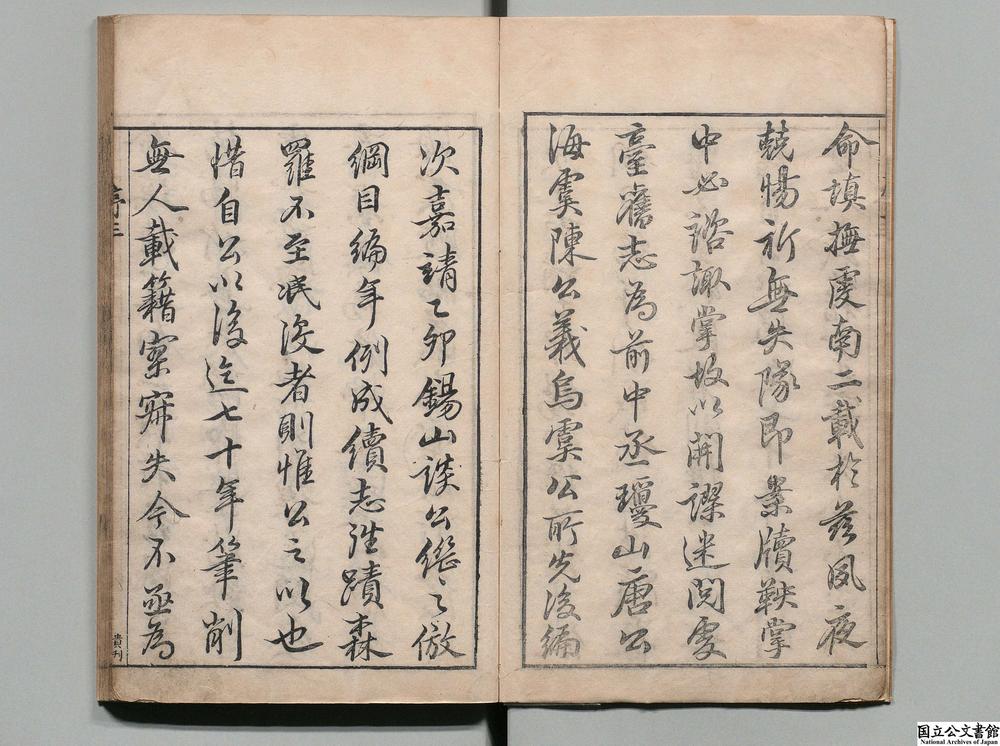 命填撫虔南二載於茲夙夜
兢惕祈無失隊即案牘鞅掌
中必諮諏掌故以開謬迷閱虔
臺舊志為前中丞瓊山唐公
海虞陳公義烏虞公所先後編
次嘉靖乙卯錫山談公繼之倣
綱目編年例成續志往蹟森
羅不至泯沒者則惟公之以也
惜自公以後迄七十年筆削
無人載籍寥寂失今不亟為
序三
國立公文書館
National Archives of Japan